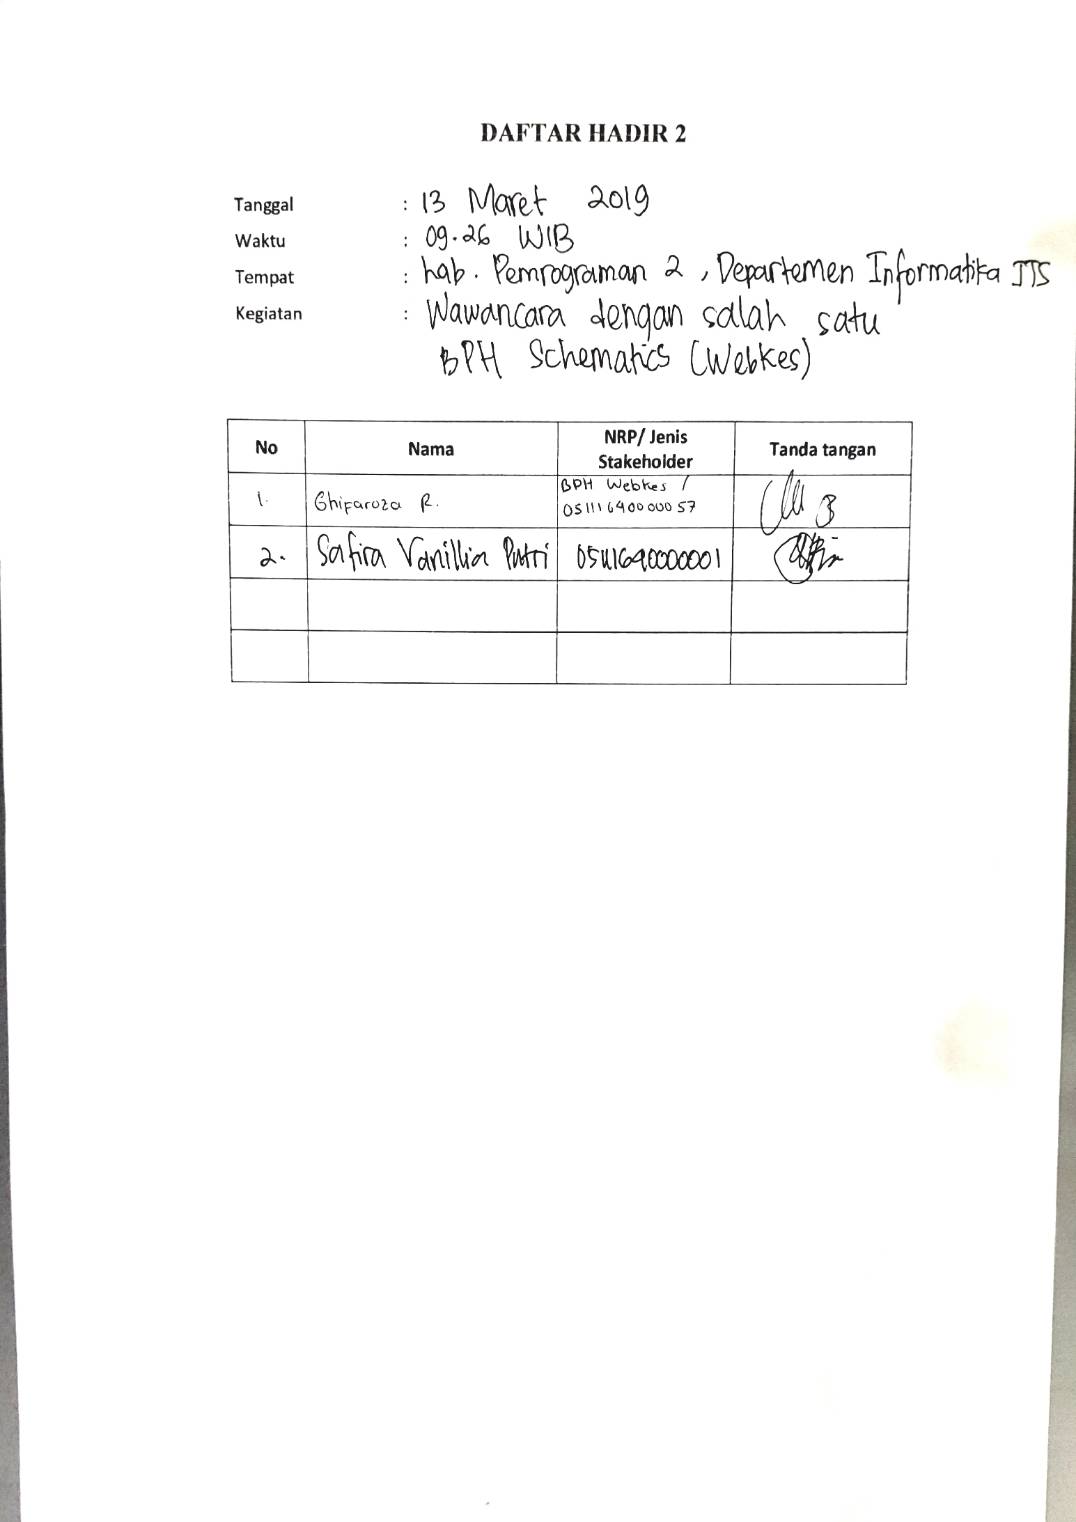 DAFTAR HADIR 2
Tanggal : 13 Maret 2019
Waktu : 09.26 WIB
Tempat : Lab. Pemrograman 2, Departemen Informatika ITS
Kegiatan : Wawancara dengan salah satu
BPH Schematics (Webkes)
No Nama NRP/ Jenis Stakeholder Tanda tangan
1. Ghifaroza R. BPH Webkes / 05111640000057
2. Safira Vanillia Putri 05111640000001